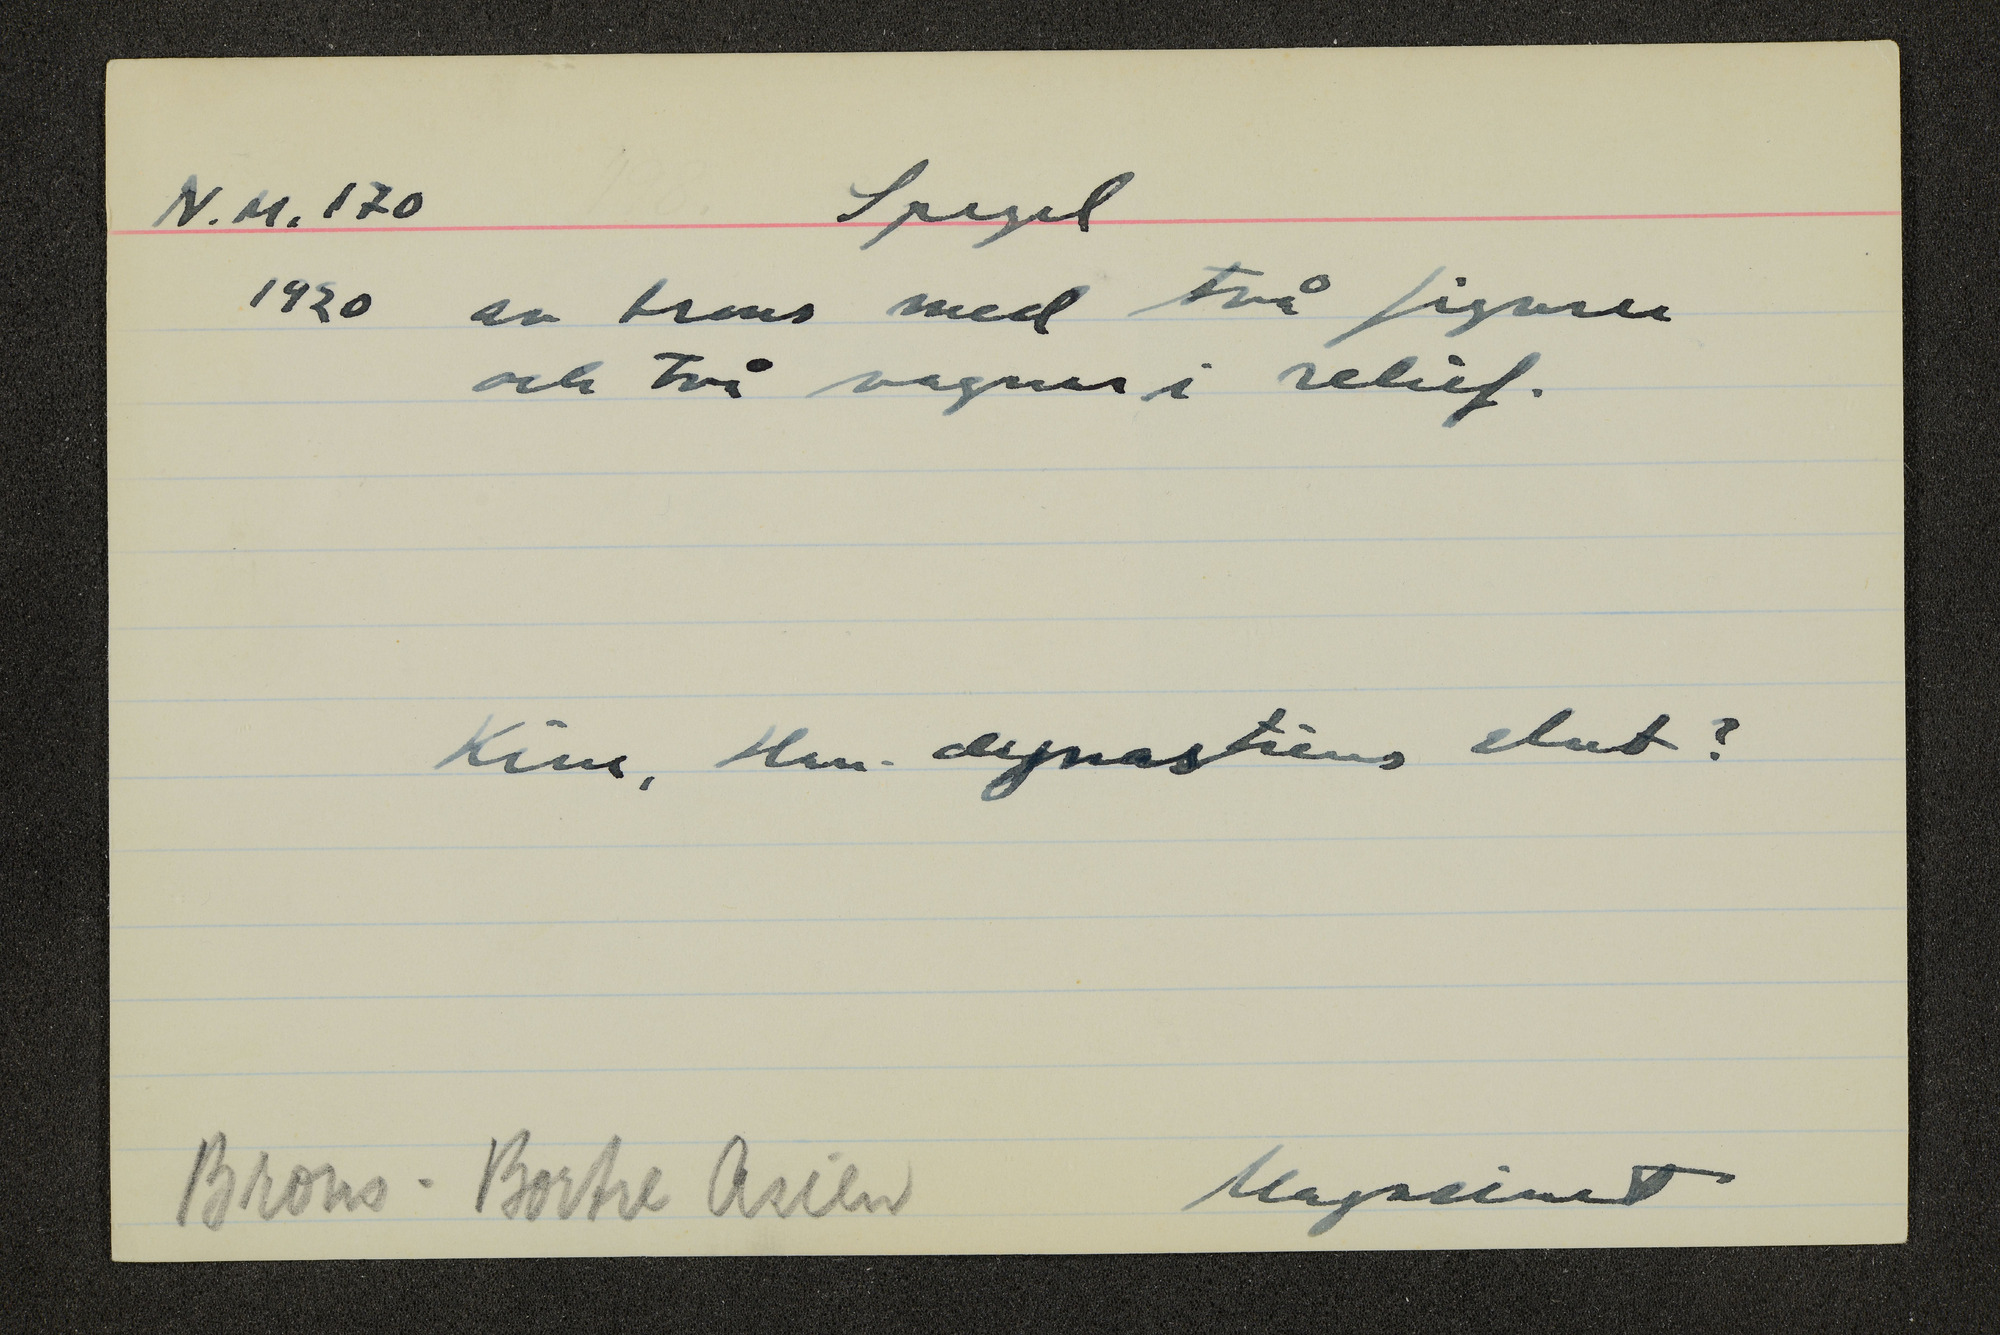 N.M. 170 Spegel
1920 av brons med två figurer
och två vagnar i relief.
Kina, Han-dynastiens slut?
Brons - Bortre Asien Magasinet